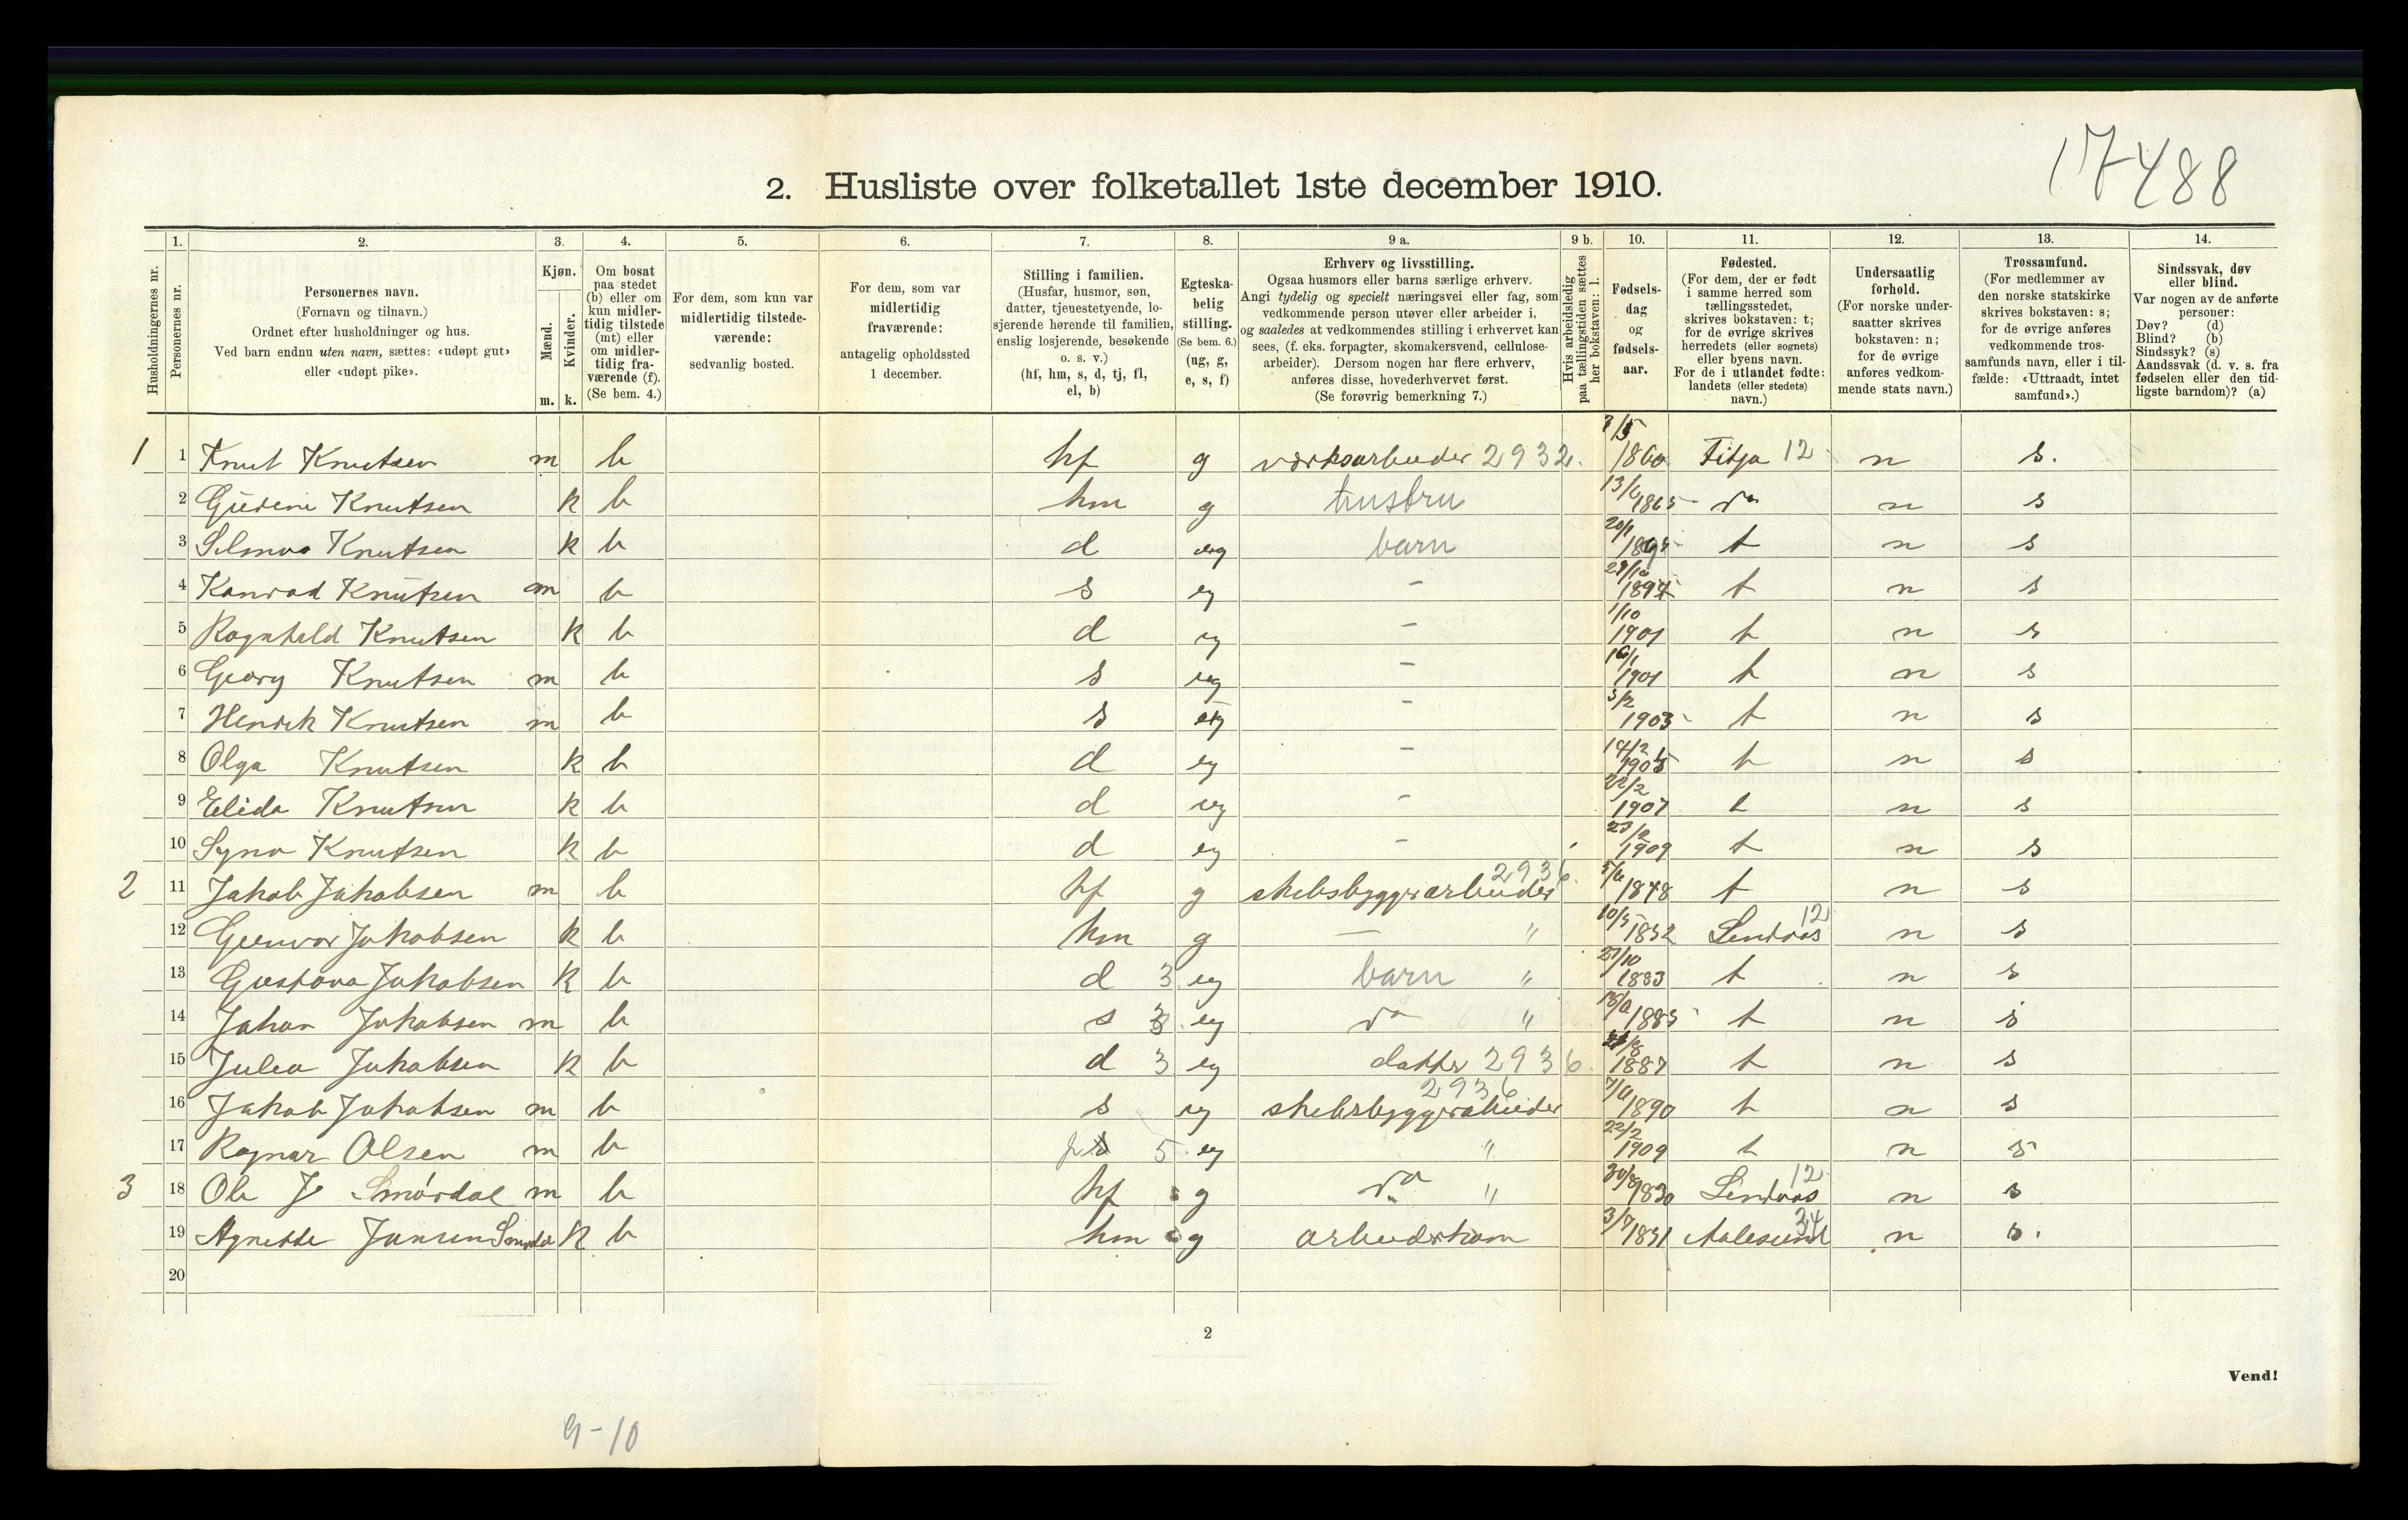 17488
2. Husliste over folketallet 1ste december 1910.
Husholdningernes nr.
1. Personernes nr.
2. Personernes navn.
(Fornavn og tilnavn.)
Ordnet efter husholdninger og hus.
Ved barn endnu uten navn, sættes: «udøpt gut»
eller «udøpt pike».
3. Kjøn.
Mænd. Kvinder.
m. k.
4. Om bosat
paa stedet
(b) eller om
kun midler-
tidig tilstede
(mt) eller
om midler-
tidig fra-
værende (f).
(Se bem. 4.)
5. For dem, som kun var
midlertidig tilstede-
værende:
sedvanlig bosted.
6. For dem, som var
midlertidig
fraværende:
antagelig opholdssted
1 december.
7. Stilling i familien.
(Husfar, husmor, søn,
datter, tjenestetyende, lo-
sjerende hørende til familien,
enslig losjerende, besøkende
o. s. v.)
(hf, hm, s, d, tj, fl,
el, b)
8. Egteska-
belig
stilling.
(Se bem. 6.)
(ug, g,
e, s, f)
9 a. Erhverv og livsstilling.
Ogsaa husmors eller barns særlige erhverv.
Angi tydelig og specielt næringsvei eller fag, som
vedkommende person utøver eller arbeider i,
og saaledes at vedkommendes stilling i erhvervet kan
sees, (f. eks. forpagter, skomakersvend, cellulose-
arbeider). Dersom nogen har flere erhverv,
anføres disse, hovederhvervet først.
(Se forøvrig bemerkning 7.)
9 b. Hvis arbeidsledig
paa tællingstiden sættes
her bokstaven: l.
10. Fødsels-
dag
og
fødsels-
aar.
11. Fødested.
(For dem, der er født
i samme herred som
tællingsstedet,
skrives bokstaven: t;
for de øvrige skrives
herredets (eller sognets)
eller byens navn.
For de i utlandet fødte:
landets (eller stedets)
navn.)
12. Undersaatlig
forhold.
(For norske under-
saatter skrives
bokstaven: n;
for de øvrige
anføres vedkom-
mende stats navn.)
13. Trossamfund.
(For medlemmer av
den norske statskirke
skrives bokstaven: s;
for de øvrige anføres
vedkommende tros-
samfunds navn, eller i til-
fælde: «Uttraadt, intet
samfund».)
14. Sindssvak, døv
eller blind.
Var nogen av de anførte
personer:
Døv? (d)
Blind? (b)
Sindssyk? (s)
Aandssvak (d. v. s. fra
fødselen eller den tid-
ligste barndom)? (a)
1 1 Knut Knutsen m b hf g værksarbeider 2932. 1860 Fitja 12 n s.
2 Knutsen k b hm g hustru 1865 do n s
3 Selma Knutsen k b d ug barn 20/1 t n s
4 Konrad Knutsen m b s ug - t n s
5 Ragnhild Knutsen k b d ug - 1/10 1901 t n s
6 Georg Knutsen m b s ug - 1901 t n s
7 Henrik Knutsen m b s ug - 3/2 1903 t n s
8 Olga Knutsen k b d ug - 14/2 1905 t n s
9 Elida Knutsen k b d ug - 22/2 1907 t n s
10 Knutsen k b d ug - 1909 t n s
2 11 Jakob Jakobsen m b hf g skibsbyggerarbeider 2936. 1848 t n s
12 Gunvor Jakobsen k b hm g — " 10/5 1852 Lindaas 12 n s
13 Gustava Jakobsen k b d 3 ug barn " 27/10 1883 t n s
14 Johan Jakobsen m b s 3 ug do " 1885 t n s
15 Julia Jakobsen k b d 3 ug datter 2936. 1887 t n s
16 Jakob Jakobsen m b s ug skibsbyggerarbeider 2936 1890 t n s
17 Ragnar Olsen m b 5 ug " 22/2 1909 t n s
3 18 Ole J Smørdal m b hf g do " 1830 Lindaas 12 n s
19 Agnethe Jansen Smørdal k b hm g arbeiderkone 3/7 1831 Aalesund 34 n s.
20
2
Vend!
9-10